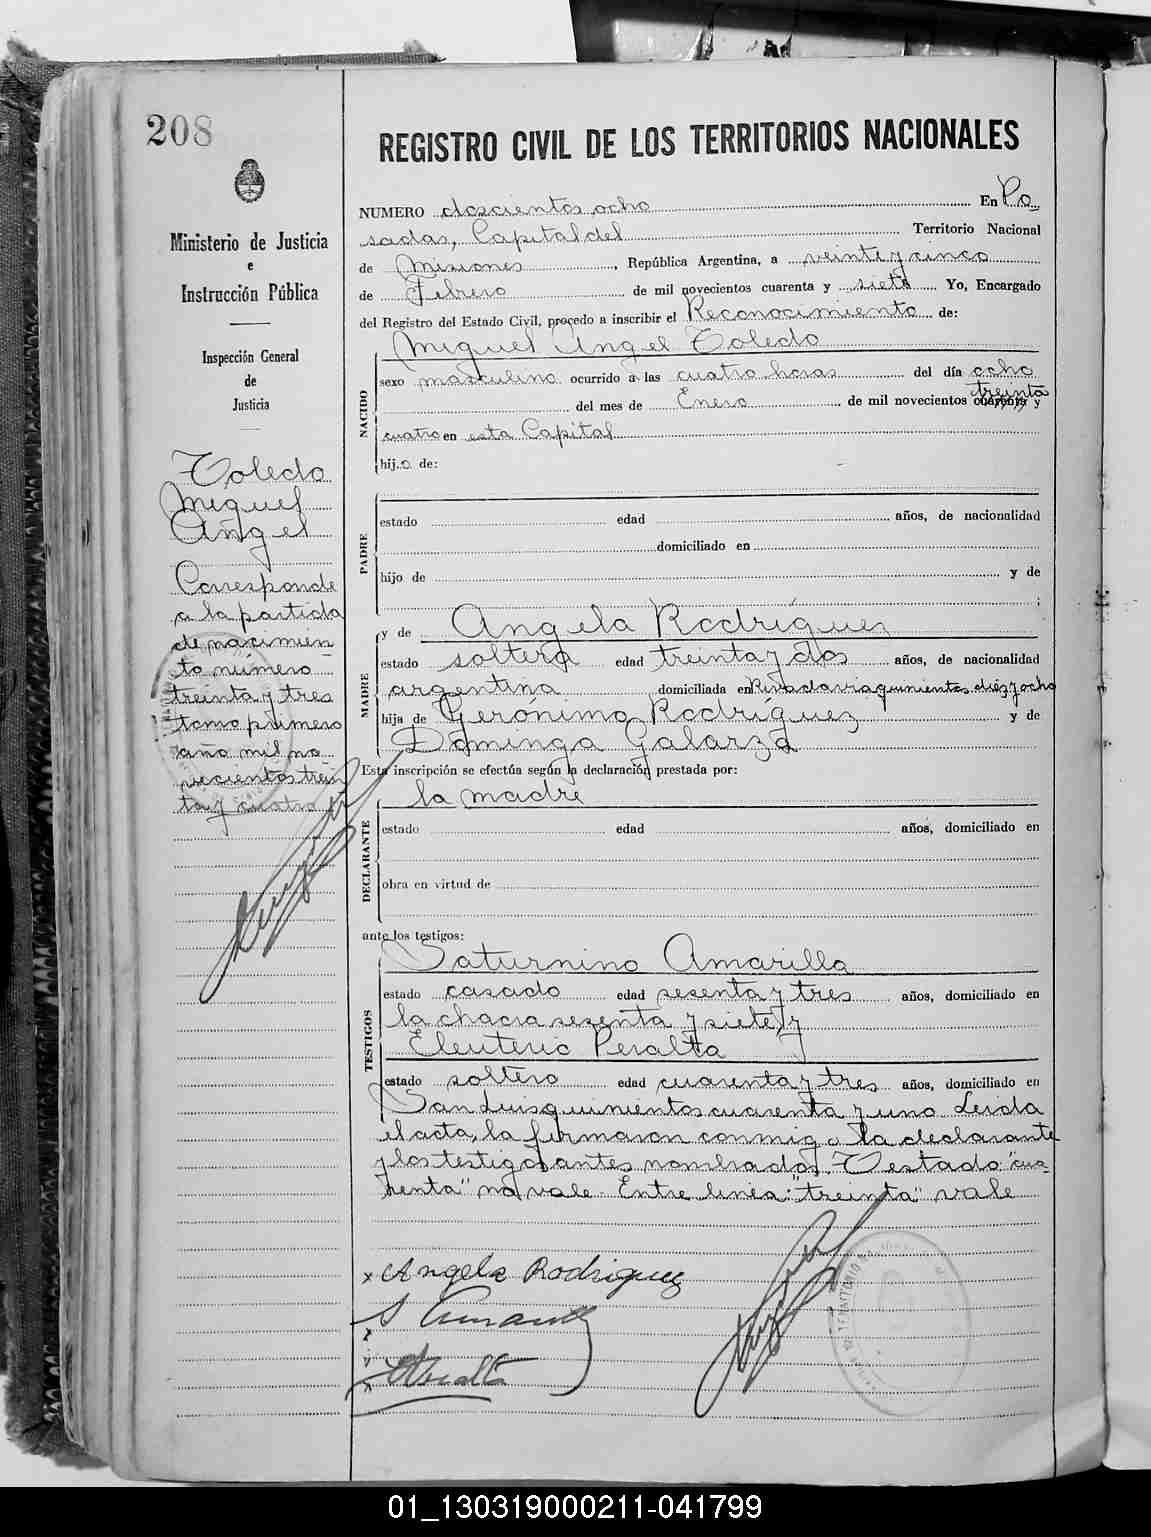 208
Ministerio de Justicia
e
Instrucción Pública
Inspección General
de
Justicia
Toledo
Miguel
Angel
Corresponde
a la partida
de nacimien
to número
treinta y tres
tomo primero
año mil no
vecientos trein
ta y cuatro
REGISTRO CIVIL DE LOS TERRITORIOS NACIONALES
NUMERO doscientos ocho En Po
sadas, Capital del Territorio Nacional
de Misiones, República Argentina, a veinte y cinco
de Febrero de mil novecientos cuarenta y siete Yo, Encargado
del Registro del Estado Civil, procedo a inscribir el Reconocimiento de:
Miguel Angel Toledo
NACIDO
sexo masculino ocurrido a las cuatro horas del día ocho
treinta
del mes de Enero de mil novecientos cuarenta y
cuatro en esta Capital
hijo de:
PADRE
estado edad años, de nacionalidad
domiciliado en
hijo de y de
;
y de Angela Rodríguez
MADRE
estado soltera edad treinta y dos años, de nacionalidad
argentina domiciliada en Rivadavia quinientos diez y ocho
hija de Gerónimo Rodríguez y de
Dominga Galarza
Esta inscripción se efectúa según la declaración prestada por:
la madre
DECLARANTE
estado edad años, domiciliado en
obra en virtud de
ante los testigos:
Saturnino Amarilla
TESTIGOS
estado casado edad sesenta y tres años, domiciliado en
la chacra sesenta y siete y
Eleuterio Peralta
estado soltero edad cuarenta y tres años, domiciliado en
San Luis quinientos cuarenta y uno Leida
el acta, la firmaron conmigo la declarante
y los testigos antes nombrados. Testado: "cua-
renta" no vale Entre linea: "treinta" vale
x Angela Rodriguez
S Amarilla
EPeralta
01_130319000211-041799